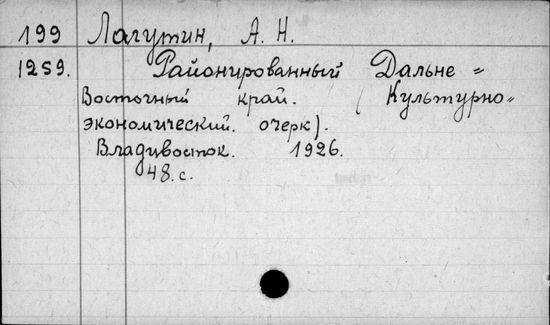 199 Лагутин, А. Н.
1259. Районированный Дальне=
Восточный край. (Культурно=
экономический. очерк).
Владивосток. 1926.
48. с.